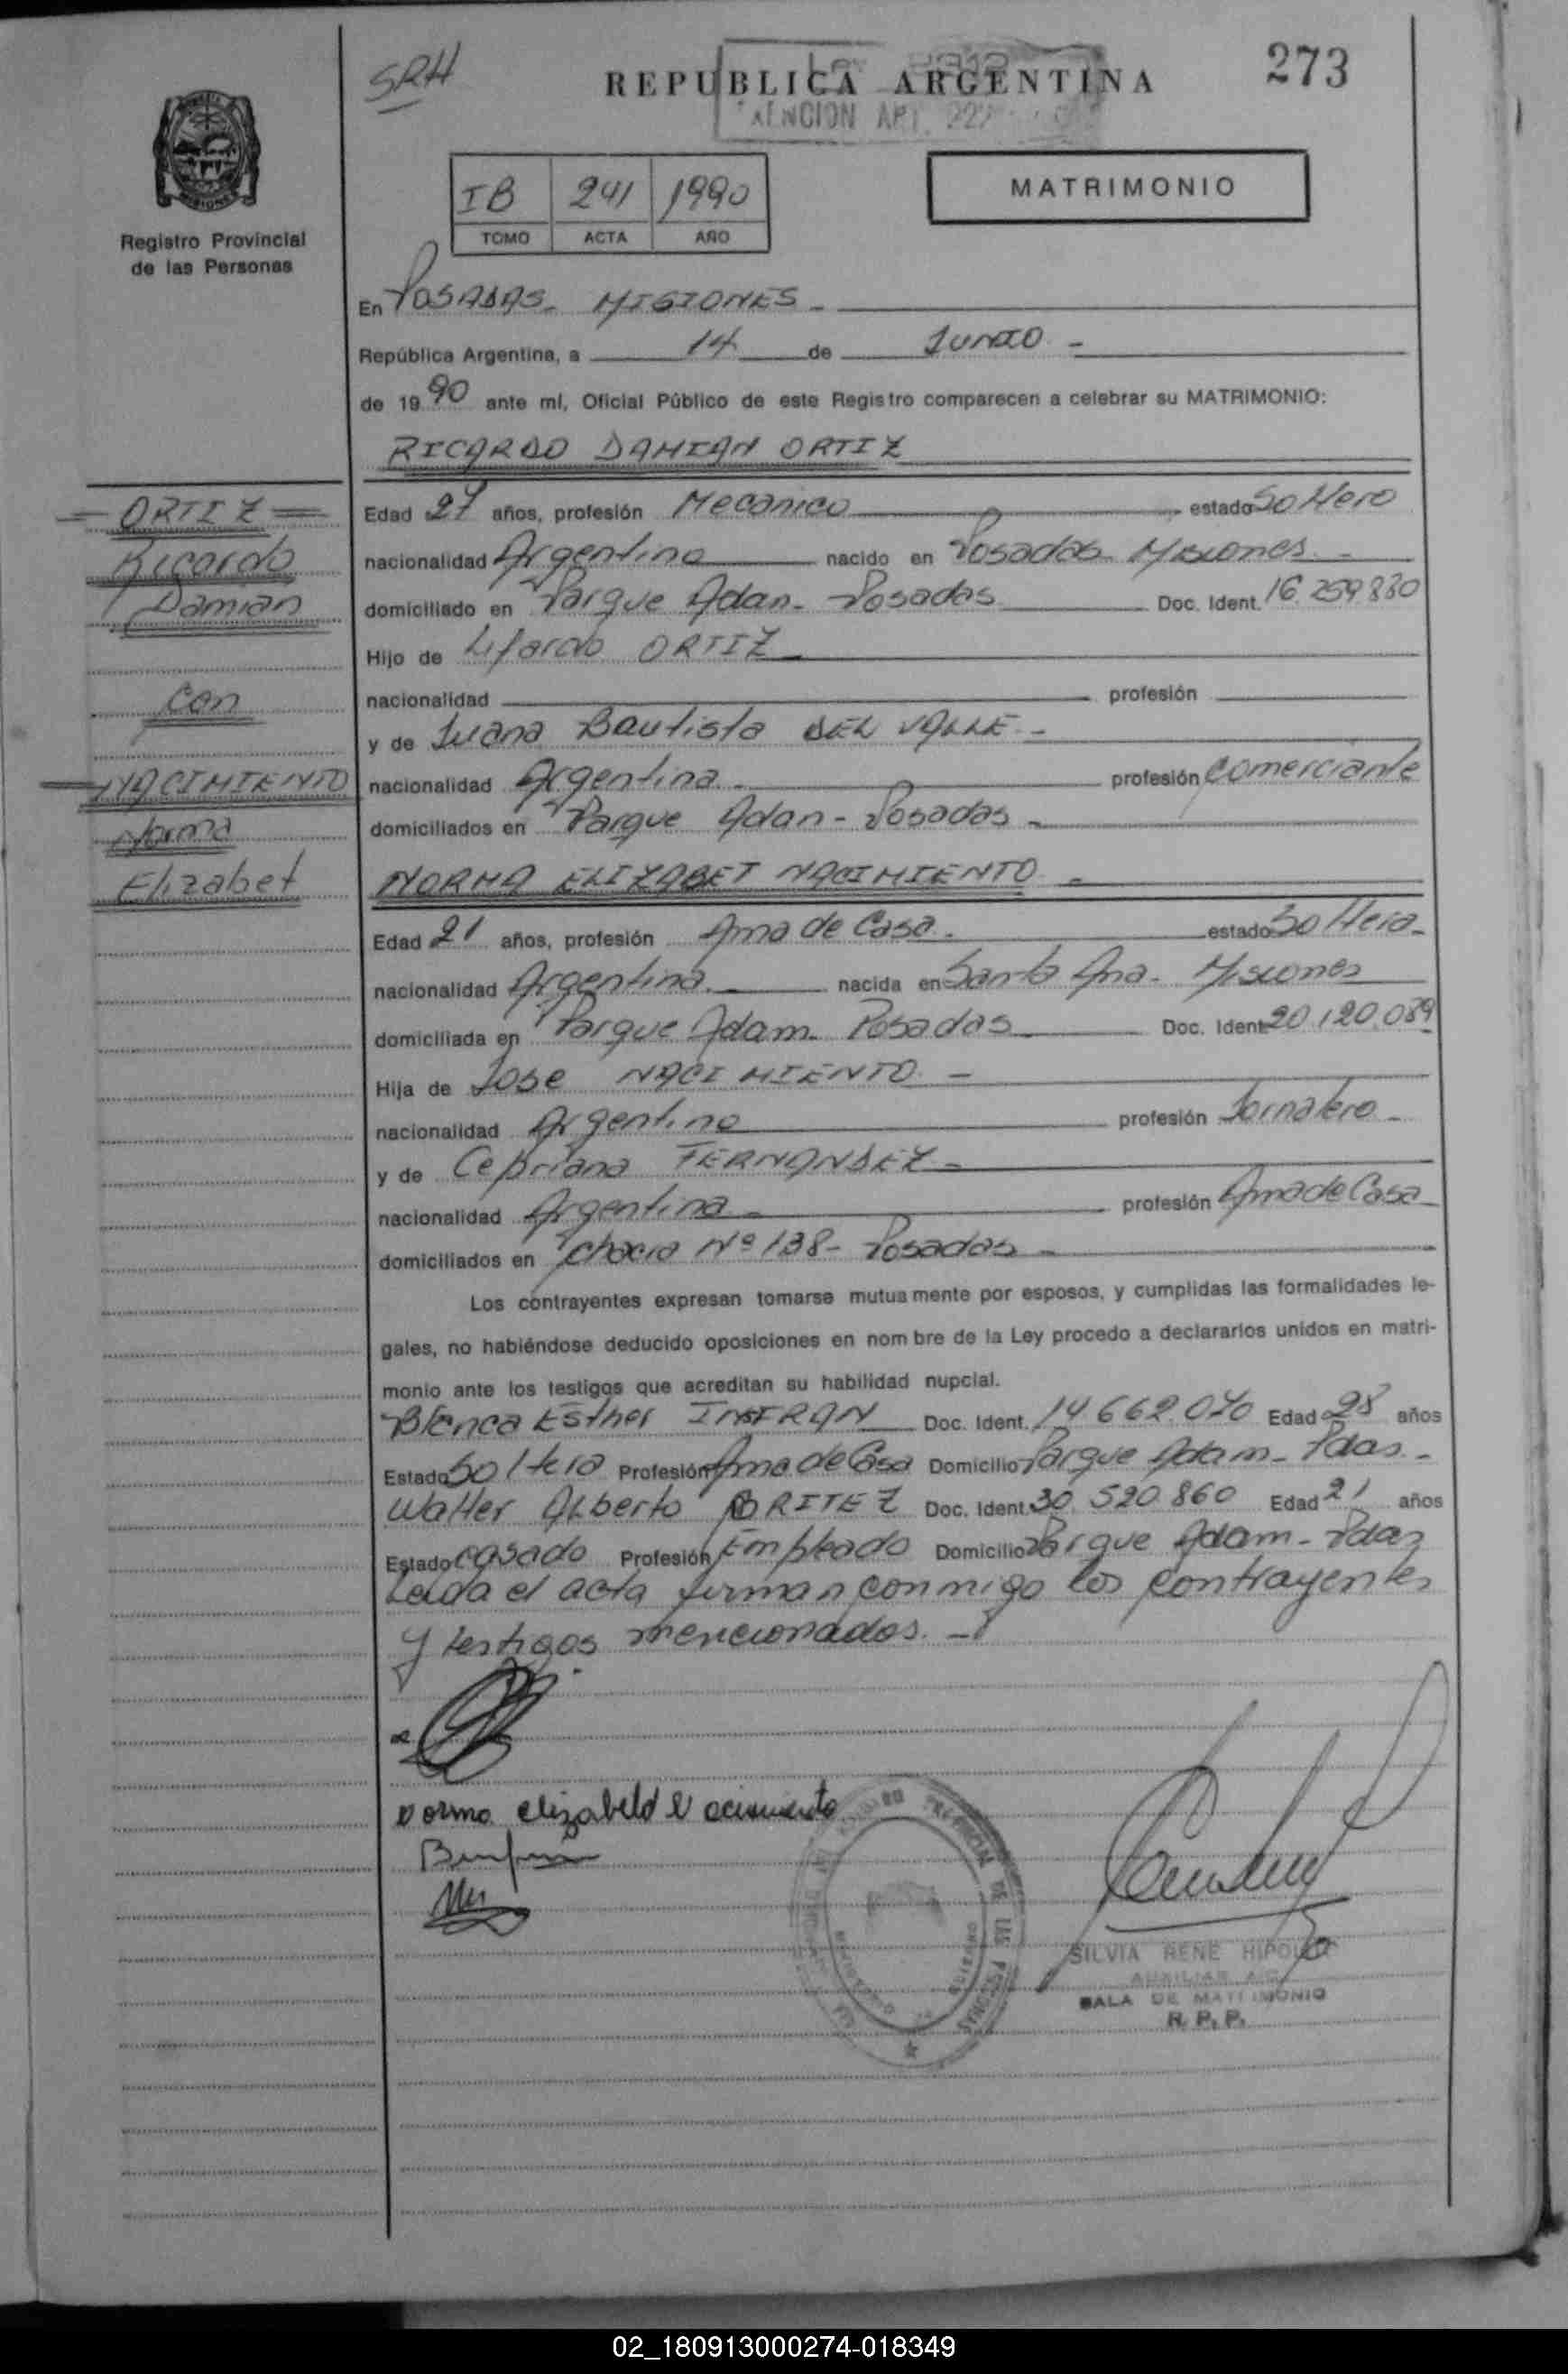 SRH
REPUBLICA ARGENTINA
273
IB 241 1990
TOMO ACTA AÑO
MATRIMONIO
Registro Provincial
de las Personas
En POSADAS - MISIONES -
República Argentina, a 14 de JUNIO -
de 1990 ante mí, Oficial Público de este Registro comparecen a celebrar su MATRIMONIO:
RICARDO DAMIAN ORTIZ
= ORTIZ =
Ricardo
Damian
con
NACIMIENTO
Norma
Elizabet
Edad 27 años, profesión Mecanico estado Soltero
nacionalidad Argentino nacido en Posadas Misiones -
domiciliado en Parque Adan - Posadas Doc. Ident. 16.259.830
Hijo de Lifardo ORTIZ
nacionalidad profesión
y de Juana Bautista DEL VALLE -
nacionalidad Argentina profesión Comerciante
domiciliados en Parque Adan - Posadas -
NORMA ELIZABET NACIMIENTO -
Edad 21 años, profesión Ama de Casa. estado Soltera -
nacionalidad Argentina nacida en Santa Ana - Misiones
domiciliada en Parque Adam - Posadas Doc. Ident. 20.120.089
Hija de Jose NACIMIENTO -
nacionalidad Argentino profesión Jornalero -
y de Cepriana FERNANDEZ -
nacionalidad Argentina - profesión Ama de Casa
domiciliados en Chacra Nº 138 - Posadas -
Los contrayentes expresan tomarse mutuamente por esposos, y cumplidas las formalidades le-
gales, no habiéndose deducido oposiciones en nombre de la Ley procedo a declararlos unidos en matri-
monio ante los testigos que acreditan su habilidad nupcial.
Blanca Esther INSFRAN Doc. Ident. 14.662.070 Edad 28 años
Estado Soltera Profesión Ama de Casa Domicilio Parque Adam - Pdas. -
Walter Alberto BRITEZ Doc. Ident. 30.520.860 Edad 21 años
Estado casado Profesión Empleado Domicilio Parque Adam - Pdas
Leida el acta firman conmigo los contrayentes
y testigos mencionados. -
SILVIA RENE HIPOLITO
AUXILIAR
SALA DE MATRIMONIO
R. P. P.
02_180913000274-018349